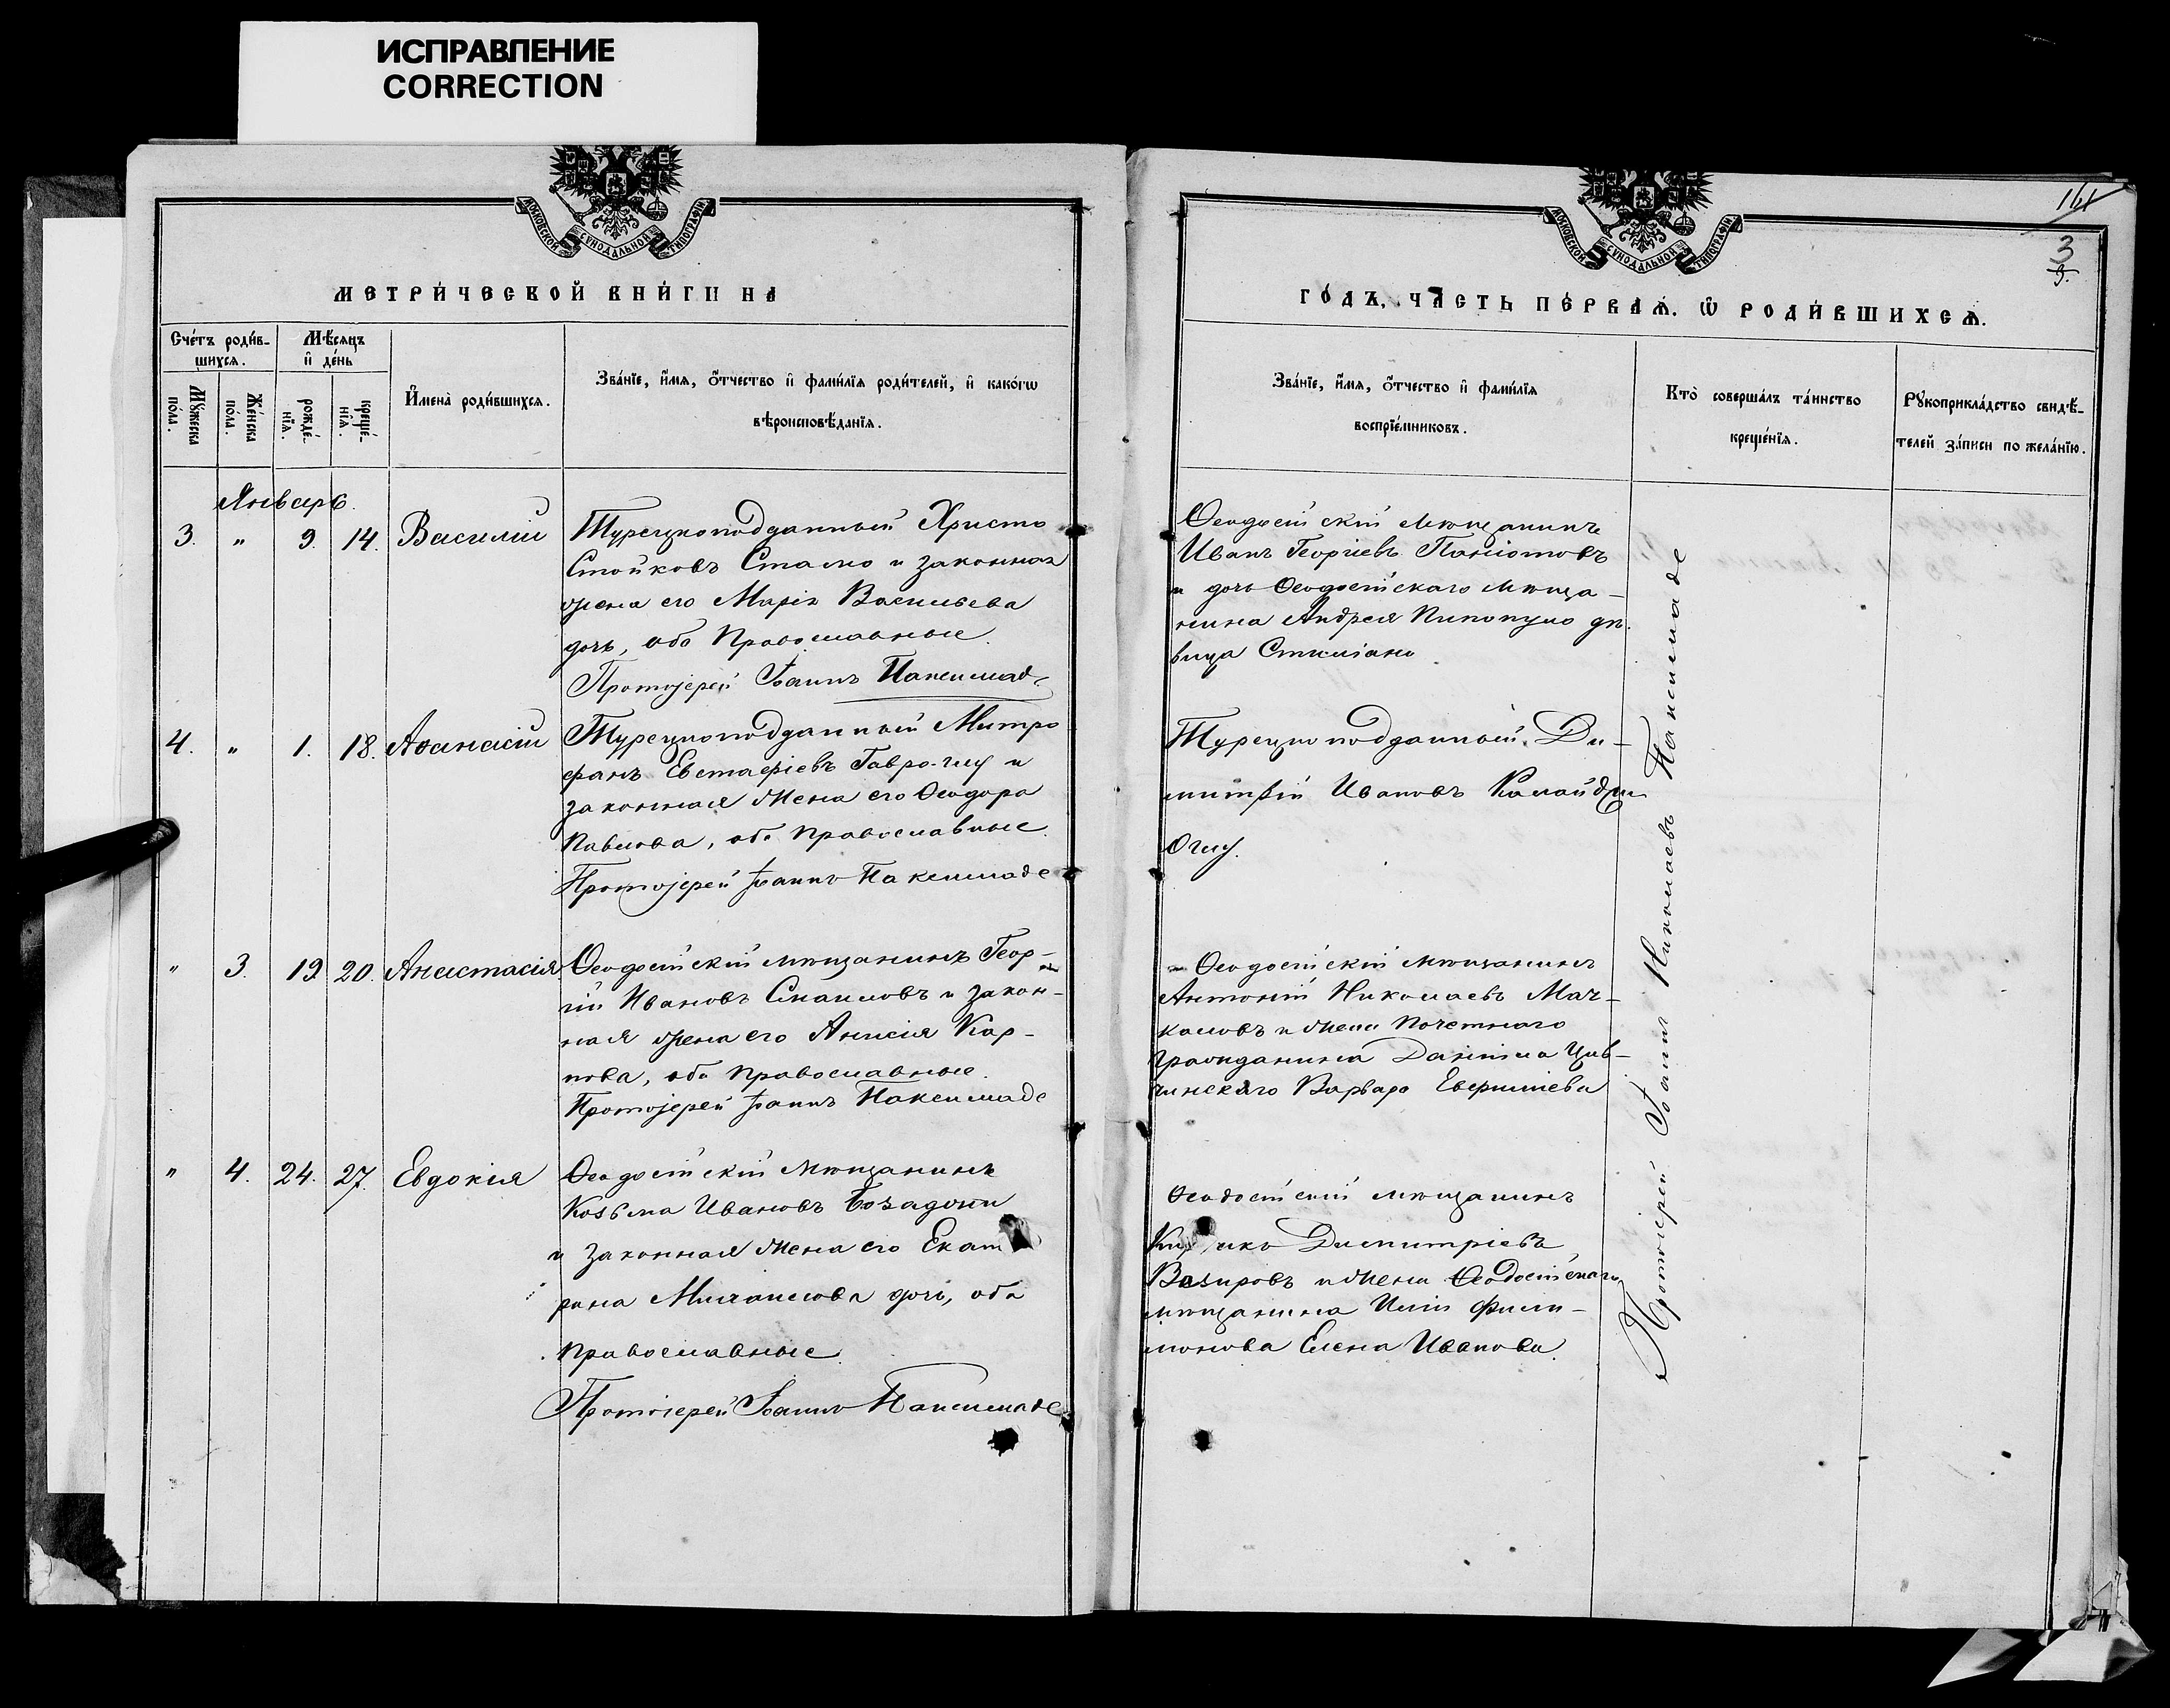 ИСПРАВЛЕНИЕ
CORRECTION
МОСКОВСКОЙ СѴНОДАЛЬНОЙ ТИПОГРАФІИ
МЕТРИ́ЧЕСКОЙ КНИ́ГИ НА
Сче́тъ роди́в-
шихся.
Мѣ́сяцъ
и҆ де́нь
Мꙋ́жеска
по́ла.
Же́нска
по́ла.
рожде́-
нїѧ.
креще́-
нїѧ.
И҆мена̀ роди́вшихсѧ.
Зва́нїе, и҆́мѧ, ѻ҆́тчество и҆ фами́лїѧ роди́телей, и҆ како́гѡ
вѣроисповѣ́данїѧ.
Январь.
3. " 9. 14. Василій
Турецкоподданный Христо
Стойковъ Стамо и законная
жена его Марія Васильева
дочь, оба Православные.
Протоіерей Іоаннъ Паксимад
4. " 1. 18. Аѳанасій
Турецкоподданный Митро
фанъ Евстафіевъ Гавра-глу и
законная жена его Ѳеодора
Павлова, оба православные.
Протоіерей Іоаннъ Паксимаде
" 3. 19 20. Анастасія
Ѳеодосійскій мѣщанинъ Геор-
гій Ивановъ Смаиловъ и закон-
ная жена его Анисія Кар-
пова, оба православные.
Протоіерей Іоаннъ Паксимаде
" 4. 24. 27. Евдокія
Ѳеодосійскій мѣщанинъ
Козьма Ивановъ
и законная жена его Екат
рина Михаилова дочь, оба
православные.
Протоіерей Іоаннъ Паксимаде
161
3
МОСКОВСКОЙ СѴНОДАЛЬНОЙ ТИПОГРАФІИ
ГО́ДЪ, ЧА́СТЬ ПЕ́РВАѦ. Ѽ РОДИ́ВШИХСѦ.
Зва́нїе, и҆́мѧ, ѻ҆́тчество и҆ фами́лїѧ
воспрїе́мниковъ.
Кто̀ соверша́лъ та́инство
креще́нїѧ.
Рꙋкоприкла́дство свидѣ́-
телей за́писи по жела́нїю.
Ѳеодосійскій мѣщанинъ
Иванъ Георгіевъ Паніотовъ
и дочь Ѳеодосійскаго мѣща-
нина Андрея Пипопуло дѣ-
вица Стиліани
Турецкоподданный Ди-
митрій Ивановъ Калайджи
Оглу.
Ѳеодосійскій мѣщанинъ
Антоній Николаевъ Мач-
каловъ и жена почетнаго
гражданина Даніила Цив-
чинскаго Варвара
Ѳеодосійскій мѣщанинъ
Димитріевъ
Вазировъ и жена Ѳеодосійскаго
мѣщанина Иліи Фили-
монова Елена Иванова.
Протоіерей Іоаннъ Николаевъ Паксимаде